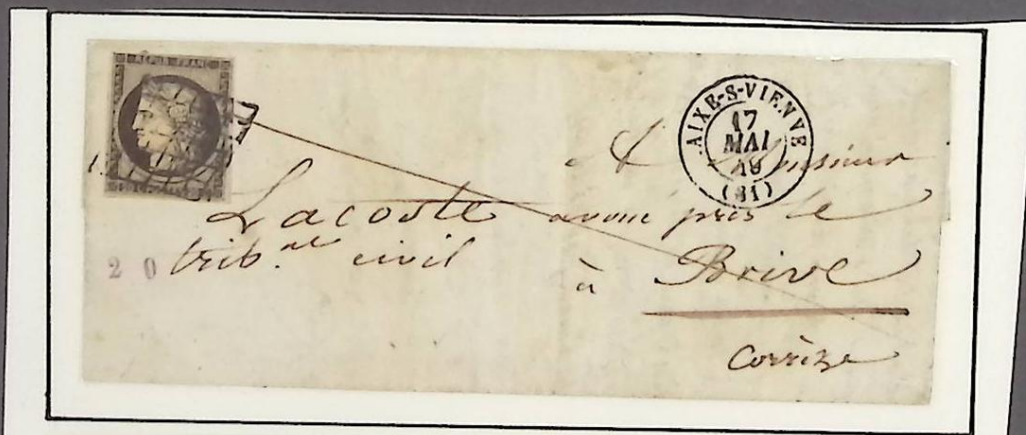 REPUB. FRANC.
AIXE-S-VIENNE
17
MAI
49
(81)
A Monsieur
Lacoste avoué près le
trib.al civil à Brive
20
Corrèze